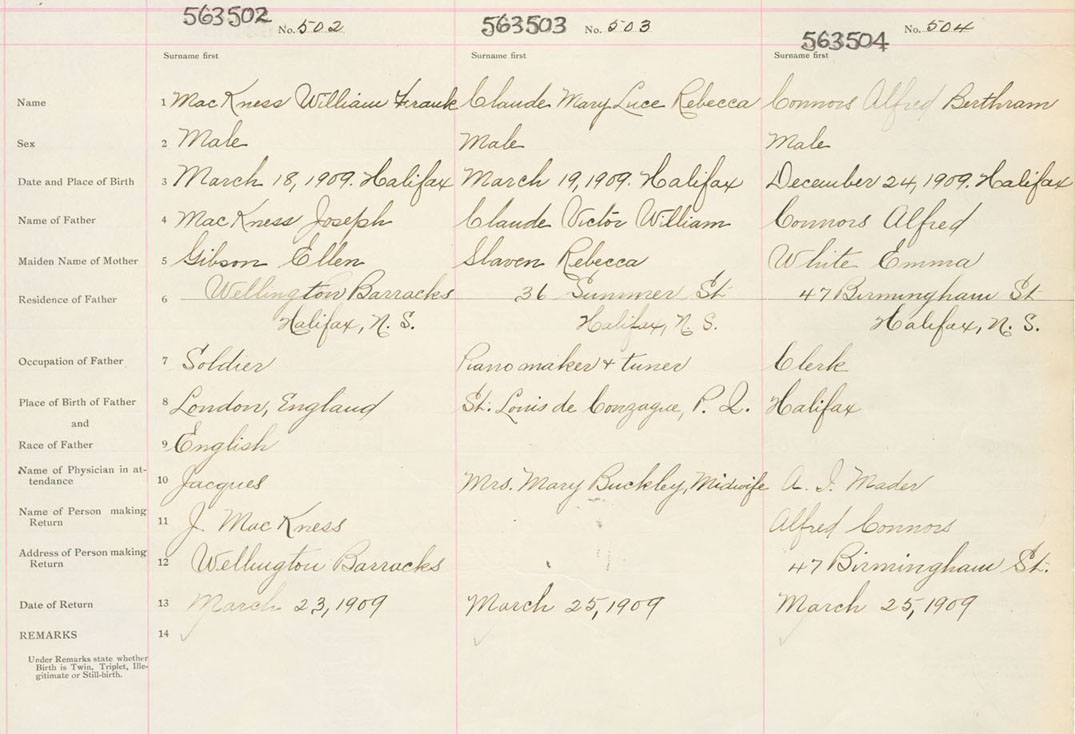 563502 No. 502 563503 No. 503 563504 No. 504
Surname first Surname first Surname first
Name 1 MacKness William Frank Claude Mary Luce Rebecca Connors Alfred Berthram
Sex 2 Male Male Male
Date and Place of Birth 3 March 18, 1909. Halifax March 19, 1909. Halifax December 24, 1909. Halifax
Name of Father 4 MacKness Joseph Claude Victor William Connors Alfred
Maiden Name of Mother 5 Gibson Ellen Slaven Rebecca White Emma
Residence of Father 6 Wellington Barracks 36 Summer St 47 Birmingham St
Halifax, N. S. Halifax, N. S. Halifax, N. S.
Occupation of Father 7 Soldier Piano maker + tuner Clerk
Place of Birth of Father 8 London, England St. Louis de Gonzague, P. Q. Halifax
and
Race of Father 9 English
Name of Physician in at-
tendance 10 Jacques Mrs. Mary Buckley, Midwife A. I. Mader
Name of Person making
Return 11 J. MacKness Alfred Connors
Address of Person making
Return 12 Wellington Barracks 47 Birmingham St.
Date of Return 13 March 23, 1909 March 25, 1909 March 25, 1909
REMARKS 14
Under Remarks state whether
Birth is Twin, Triplet, Ille-
gitimate or Still-birth.